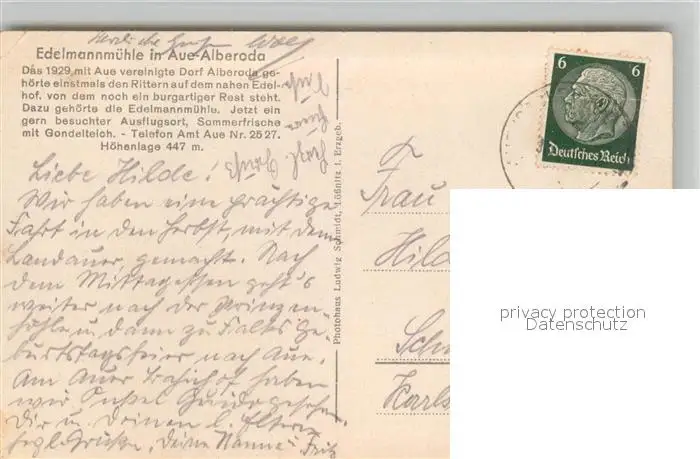 Herzliche Grüße
Edelmannmühle in Aue-Alberoda
Das 1929 mit Aue vereinigte Dorf Alberoda ge-
hörte einstmals den Rittern auf dem nahen Edel-
hof, von dem noch ein burgartiger Rest steht.
Dazu gehörte die Edelmannmühle. Jetzt ein
gern besuchter Ausflugsort, Sommerfrische
mit Gondelteich. - Telefon Amt Aue Nr. 2527.
Höhenlage 447 m.
Liebe Hilde!
Wir haben eine prächtige
Fahrt in den Herbst, mit dem
Landauer, gemacht. Nach
dem Mittagessen geht's
weiter nach der Prinzen-
höhle u. dann zu Ge-
burtstagsfeier nach Aue.
Am Auer Bahnhof haben
wir Onkel Guido gesehen.
Dir u. Deinen l. Eltern
herzl. Grüße, Deine Hanne u. Fritz
Photohaus Ludwig Schmidt, Lößnitz i. Erzgeb.
6 6
Deutsches Reich
Frau
Hild
Sch
Karls
privacy protection
Datenschutz